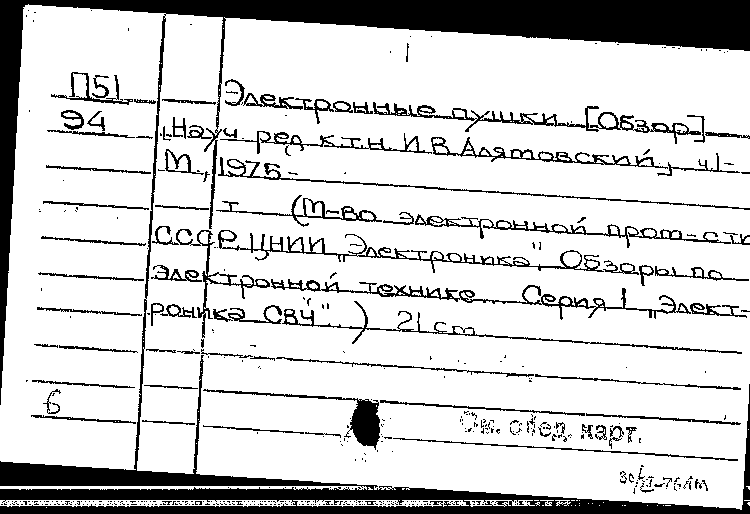 П51 Электронные пушки. [Обзор]
94 Науч. ред. к.т.н. И.В. Алямовский, ч.1-
М., 1975-
т (М-во электронной пром-сти
СССР. ЦНИИ „Электроника". Обзоры по
электронной технике. Серия 1 „Элект-
роника СВЧ".) 21 cm
6
См. обед. карт.
30/ -76